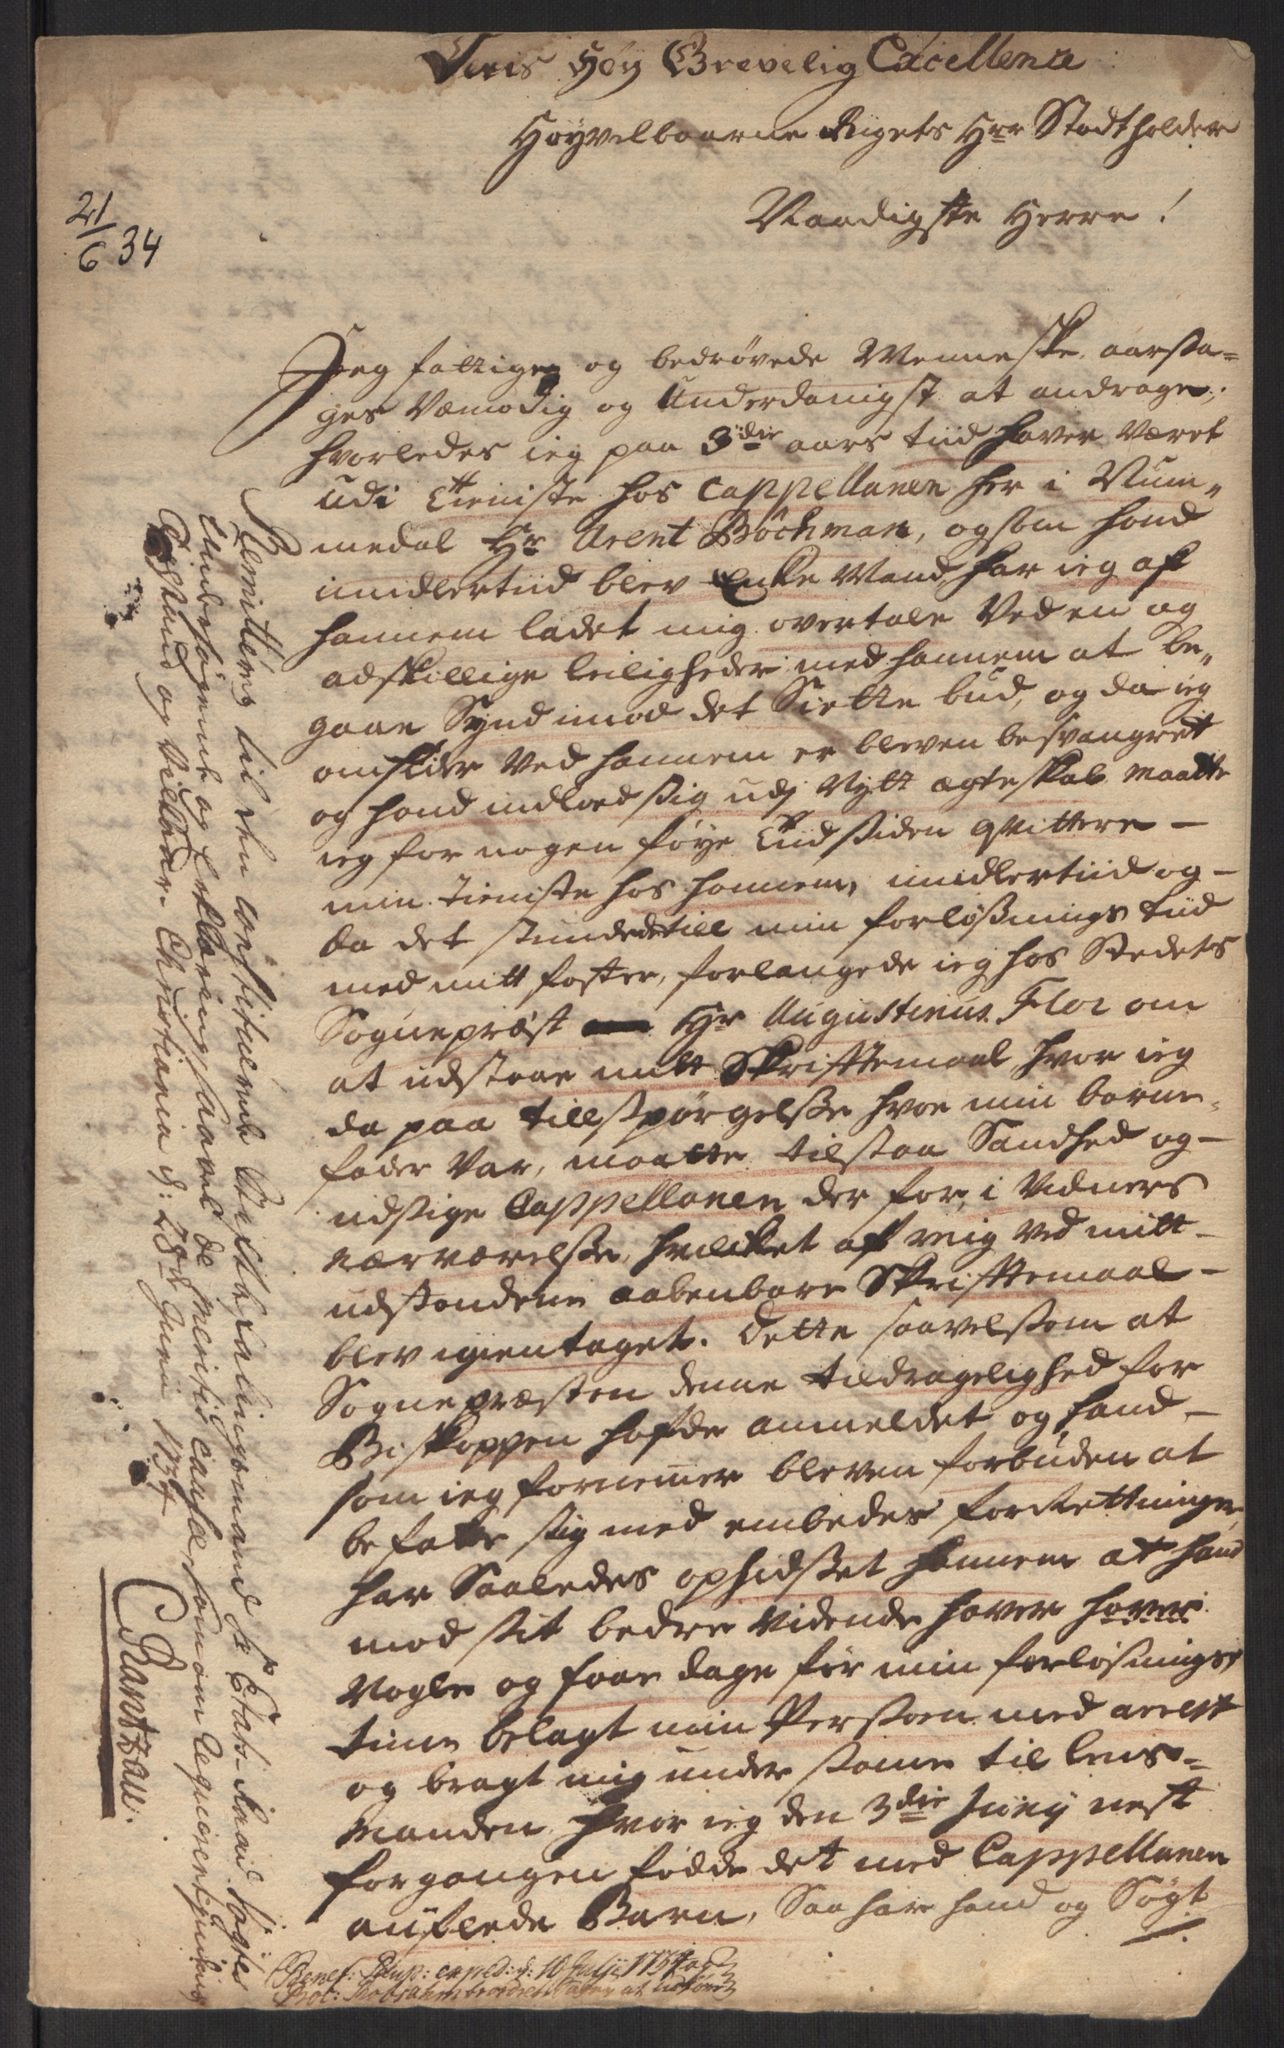 Deris Høy Grevelig Excellence
Høyvelbaarne Rigets Hr Stadtholder
Naadigste Herre!
21/6 34
Jeg fattige og bedrøvede Menneske aarsa=
ges Vemodig og Underdanigst at andrage,
hvorledes ieg paa 3die aars tiid haver veret
udi Tieniste hos Cappellanen her i Num„
medal Hr Arent Böchman, og som hand
imidlertiid blev Enke Mand har ieg af
hannem ladet mig overtale Ved en og
adskillige leiligheder med hannem at be„
gaae Synd imod det Siette bud, og da ieg
omsider Ved hannem er bleven besvangret
og hand indlod sig udj Nytt ægteskab maatte
ieg for nogen føye Tiid siden qvittere –
min Tieniste hos hannem, imidlertiid og –
da det stundede till min forløsnings tiid
med mitt foster, forlangede ieg hos Stedets
Sognepræst Hr Augustinus Flor om
at udstaae mitt Skriftemaal, hvor ieg
da paa tillspørgelse hvor min barne„
fader var, maatte tilstaa Sandhed og –
udsige Cappellanen der for, i Vidners
nærværelse, hvilket af mig ved mitt –
udstandene aabenbare Skriftemaal –
blev igientaget. Dette saavelsom at
Sognepræsten denne tildragelighed for
Biskoppen hafde anmeldet og hand –
som ieg fornemmer bleven forbuden at
befatte sig med embedes forrettninger,
har Saaledes ophidset hannem at hand
mod sit bedre vidende haver haver
Nogle og faae dage før min forløsnings
time belagt min Persoen med arrest
og bragt mig under samme til lens=
manden, hvor ieg den 3die Junij nest
forgangen fødde det med Cappellanen
auflede Barn, Saa har hand og Søgt
Remitteres til den Constituerede Stiftbefalingsmand Hr Etats-Raad
Undersøgende og Erklæring saavel de meritis causæ som om Reqvirentindes
Tilstand og Vilkaar. Christiania d: 28de Junii 1734
C Rantzau.
Benef: Paup: exped: d: 10 Julii 1734